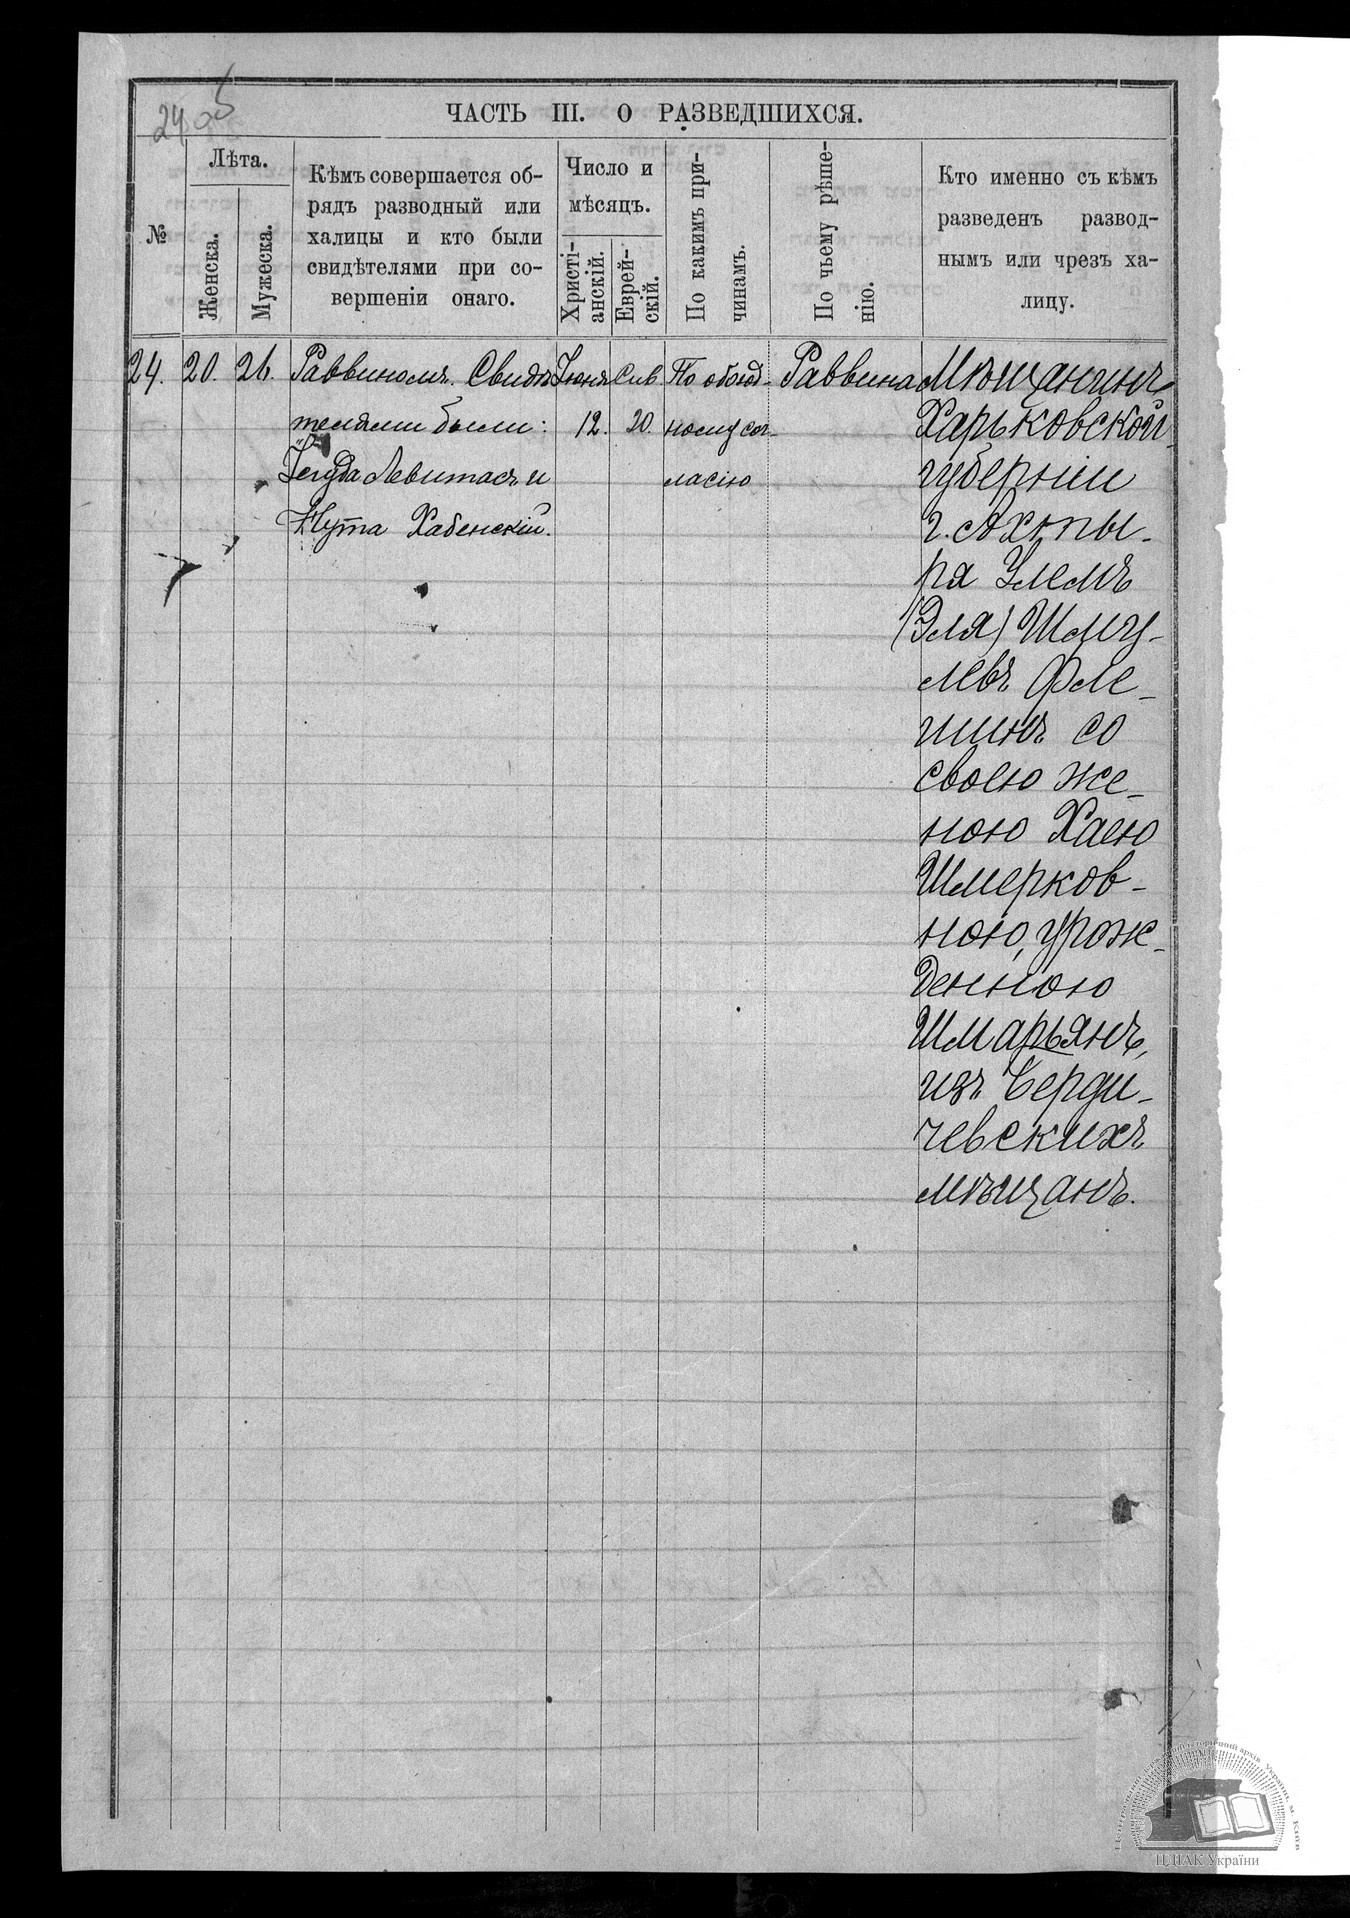 2405
ЧАСТЬ III. О РАЗВЕДШИХСЯ.
№
Лѣта.
Женска.
Мужеска.
Кѣмъ совершается об-
рядъ разводный или
халицы и кто были
свидѣтелями при со-
вершеніи онаго.
Число и
мѣсяцъ.
Христі-
анскій.
Еврей-
скій.
По какимъ при-
чинамъ.
По чьему рѣше-
нію.
Кто именно съ кѣмъ
разведенъ развод-
нымъ или чрезъ ха-
лицу.
24.
20.
26.
Раввиномъ. Свидѣ
телями были:
Іегуда Левитасъ и
Нута Хабенскій.
Іюня
12.
Сив.
20.
По обоюд-
ному сог-
ласію
Раввина
Мѣщанинъ
Харьковской
губерніи
г. Ахты-
ря Улемъ
(Эля) Шму-
левъ Фле-
шинъ со
своею же-
ною Хаею
Шмерков-
ною, урож-
денною
Шмарьянъ,
изъ Берди-
чевскихъ
мѣщанъ.
Центральний державний історичний архів України, м. Київ
ЦДІАК України